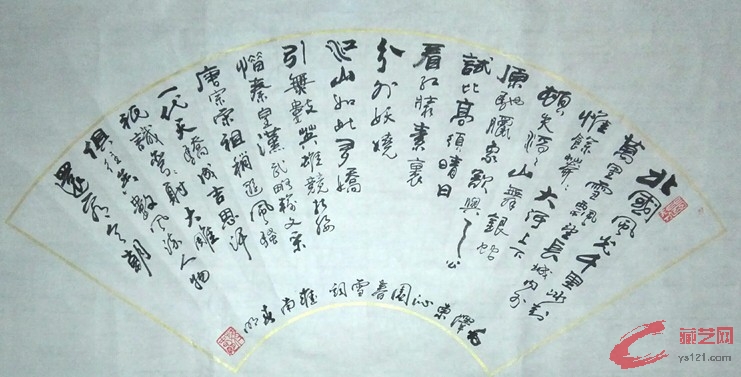 北國風光千里冰封
萬里雪飄望長城內外
惟餘莽莽大河上下
頓失滔滔山舞銀蛇
原馳臘象欲與天公
試比高須晴日
看紅裝素裹
分外妖嬈
江山如此多嬌
引無數英雄競折腰
惜秦皇漢武略輸文采
唐宗宋祖稍遜風騷
一代天驕成吉思汗
祇識彎弓射大雕
俱往矣數風流人物
還看今朝
毛澤東沁園春雪詞
藏艺网
ys121.com